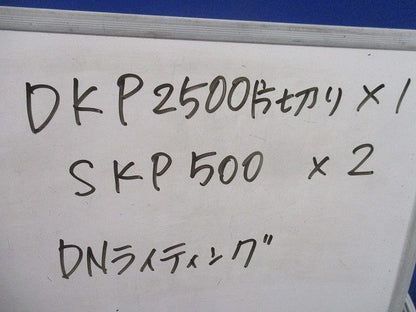 DKP2500片切り×1
SKP500 ×2
DNライティング